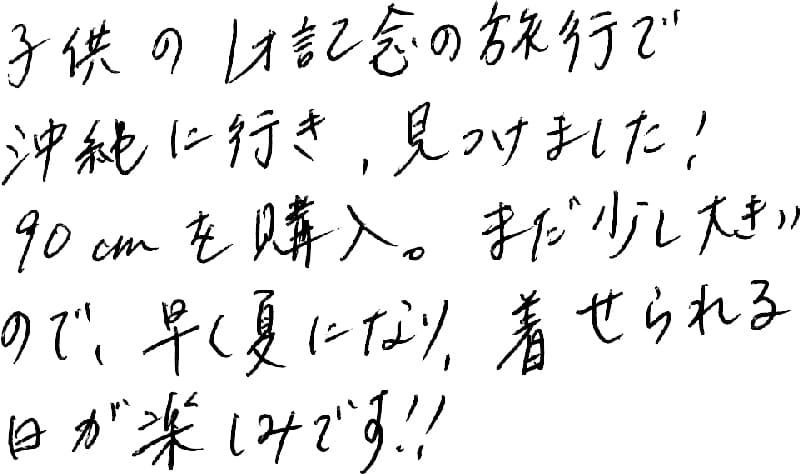 子供の1才記念の旅行で
沖縄に行き、見つけました!
90cmを購入。まだ少し大きい
ので、早く夏になり、着せられる
日が楽しみです!!